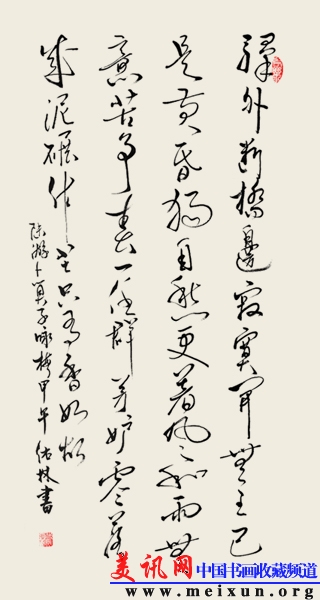 驛外断橋邊寂寞開無主已
是黄昏獨自愁更著風和雨無
意苦争春一任群芳妒零落
成泥碾作塵只有香如故
陸游卜算子咏梅甲午 林書
美讯网 中国书画收藏频道
www.meixun.org